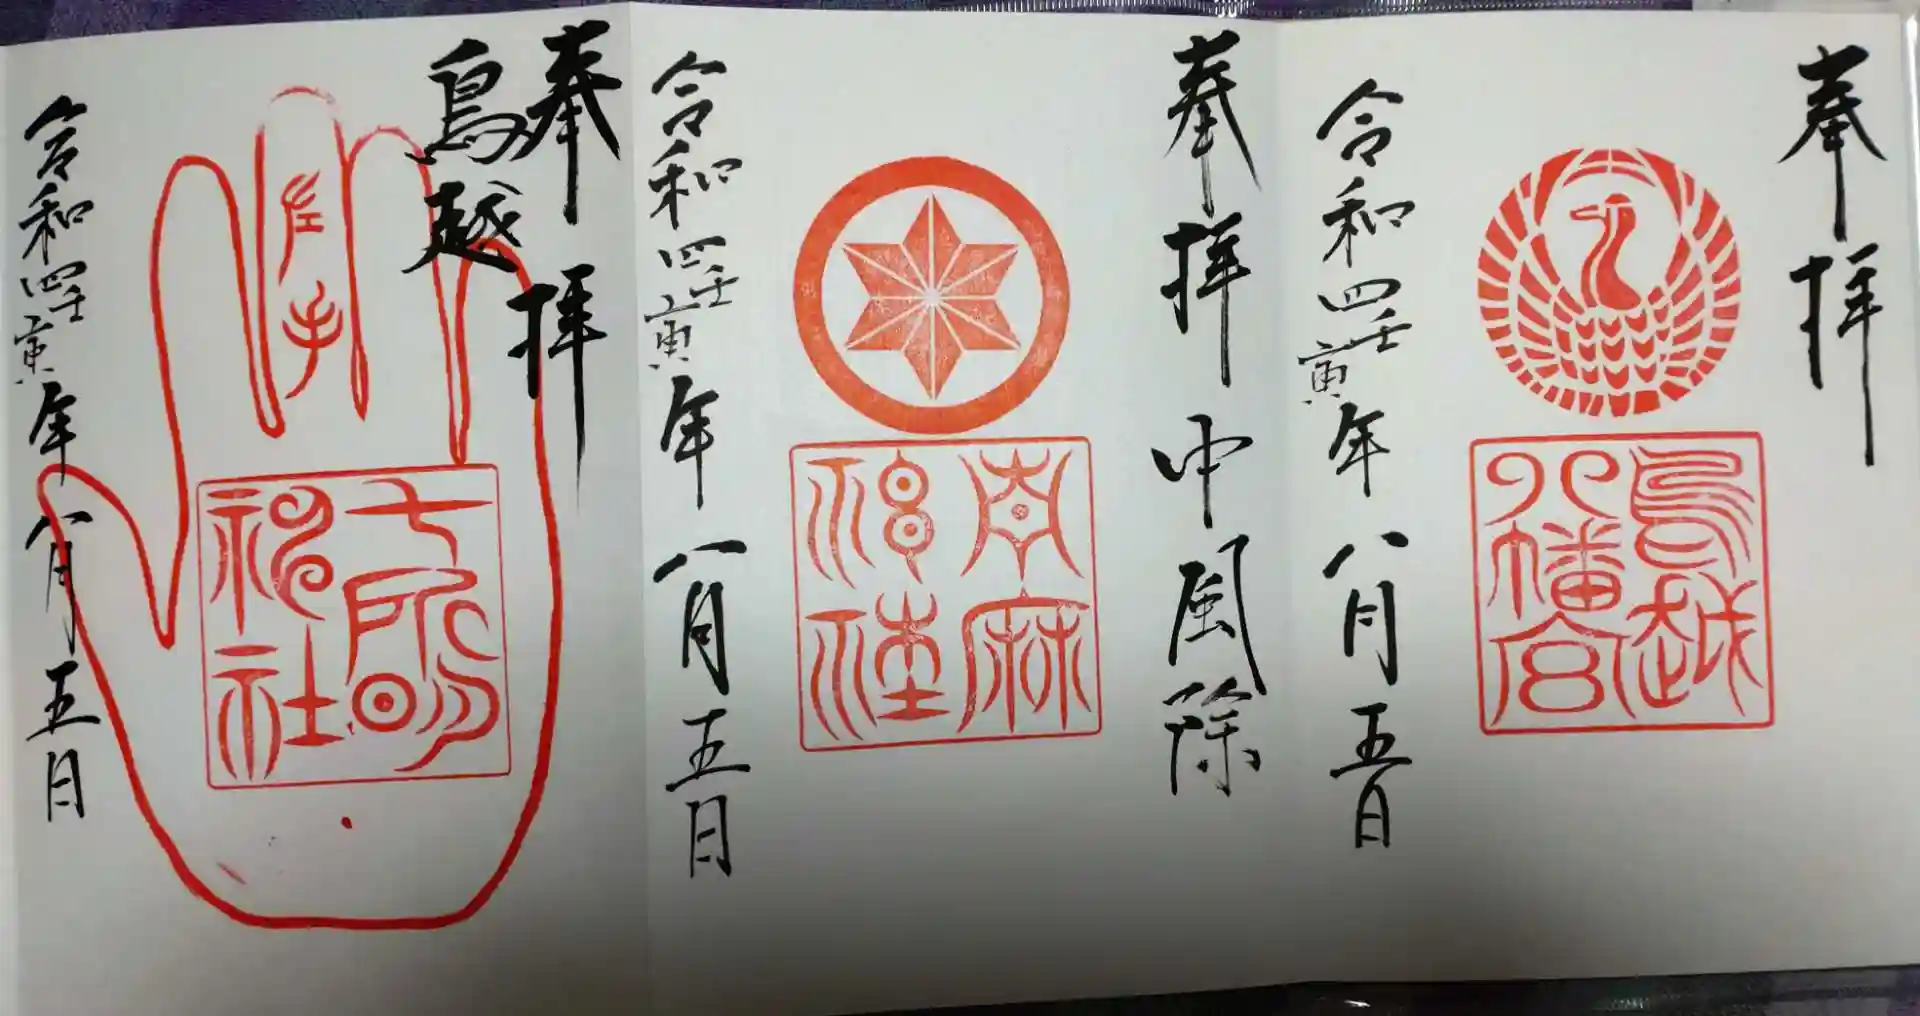 奉拝
鳥越
八幡宮
令和四壬寅年八月五日
奉拝 中風除
令和四壬寅年八月五日
奉拝
鳥越
左手
七所明
神社
令和四壬寅年八月五日